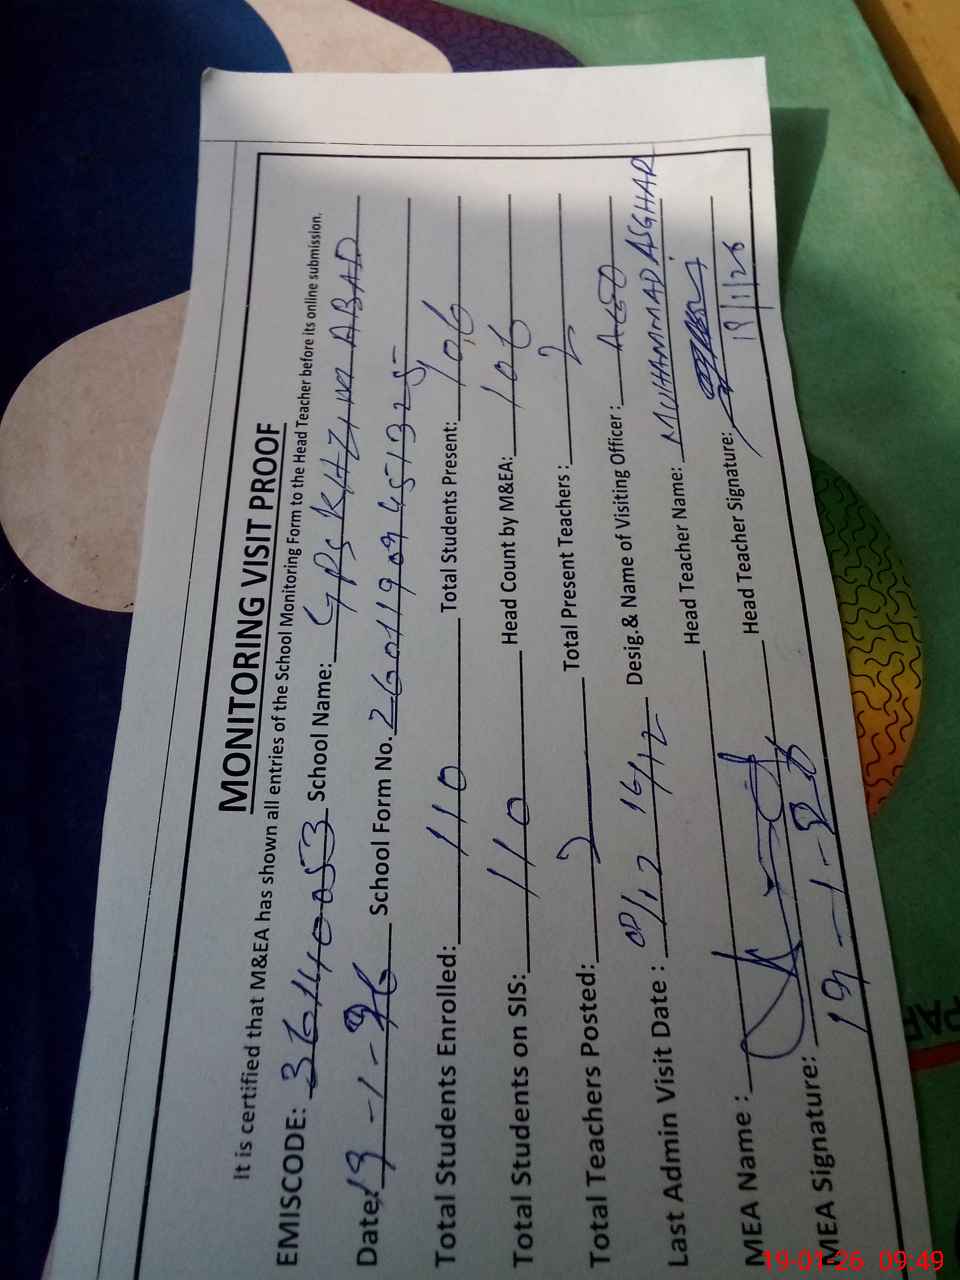 MONITORING VISIT PROOF
It is certified that M&EA has shown all entries of the School Monitoring Form to the Head Teacher before its online submission.
EMISCODE: 36140053 School Name: GPS KHZIM ABAD
Date: 19-1-26 School Form No. 26011909451325
Total Students Enrolled: 110 Total Students Present: 106
Total Students on SIS: 110 Head Count by M&EA: 106
Total Teachers Posted: 2 Total Present Teachers: 2
Last Admin Visit Date: 16/12 Desig.& Name of Visiting Officer:
MEA Name: Head Teacher Name: MUHAMMAD ASGHAR
MEA Signature: 19-1-26 Head Teacher Signature: 19/1/26
19-01-26 09:49